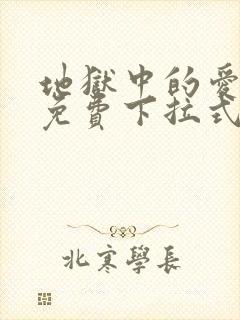 地獄中的愛
免費下拉式
北寒學長